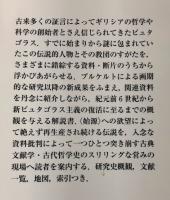 古来多くの証言によってギリシアの哲学や
科学の創始者とさえ信じられてきたピュタ
ゴラス。すでに始まりから謎に包まれてい
たこの伝説的人物とその教団のすがたを、
さまざまに錯綜する資料・断片のうちから
浮かびあがらせる。ブルケルトによる画期
的な研究以降の新成果をふまえ、関連資料
を丹念に紹介しながら、紀元前6世紀から
新ピュタゴラス主義の復活に至るまでの概
観を与える解説書。〈始源〉への欲望によっ
て絶えず再生産され続ける伝説を、入念な
資料批判によって一つひとつ突き崩す古典
文献学・古代哲学史のスリリングな営みの
現場へ読者を案内する。研究史概観，文献
一覧，地図，索引つき。